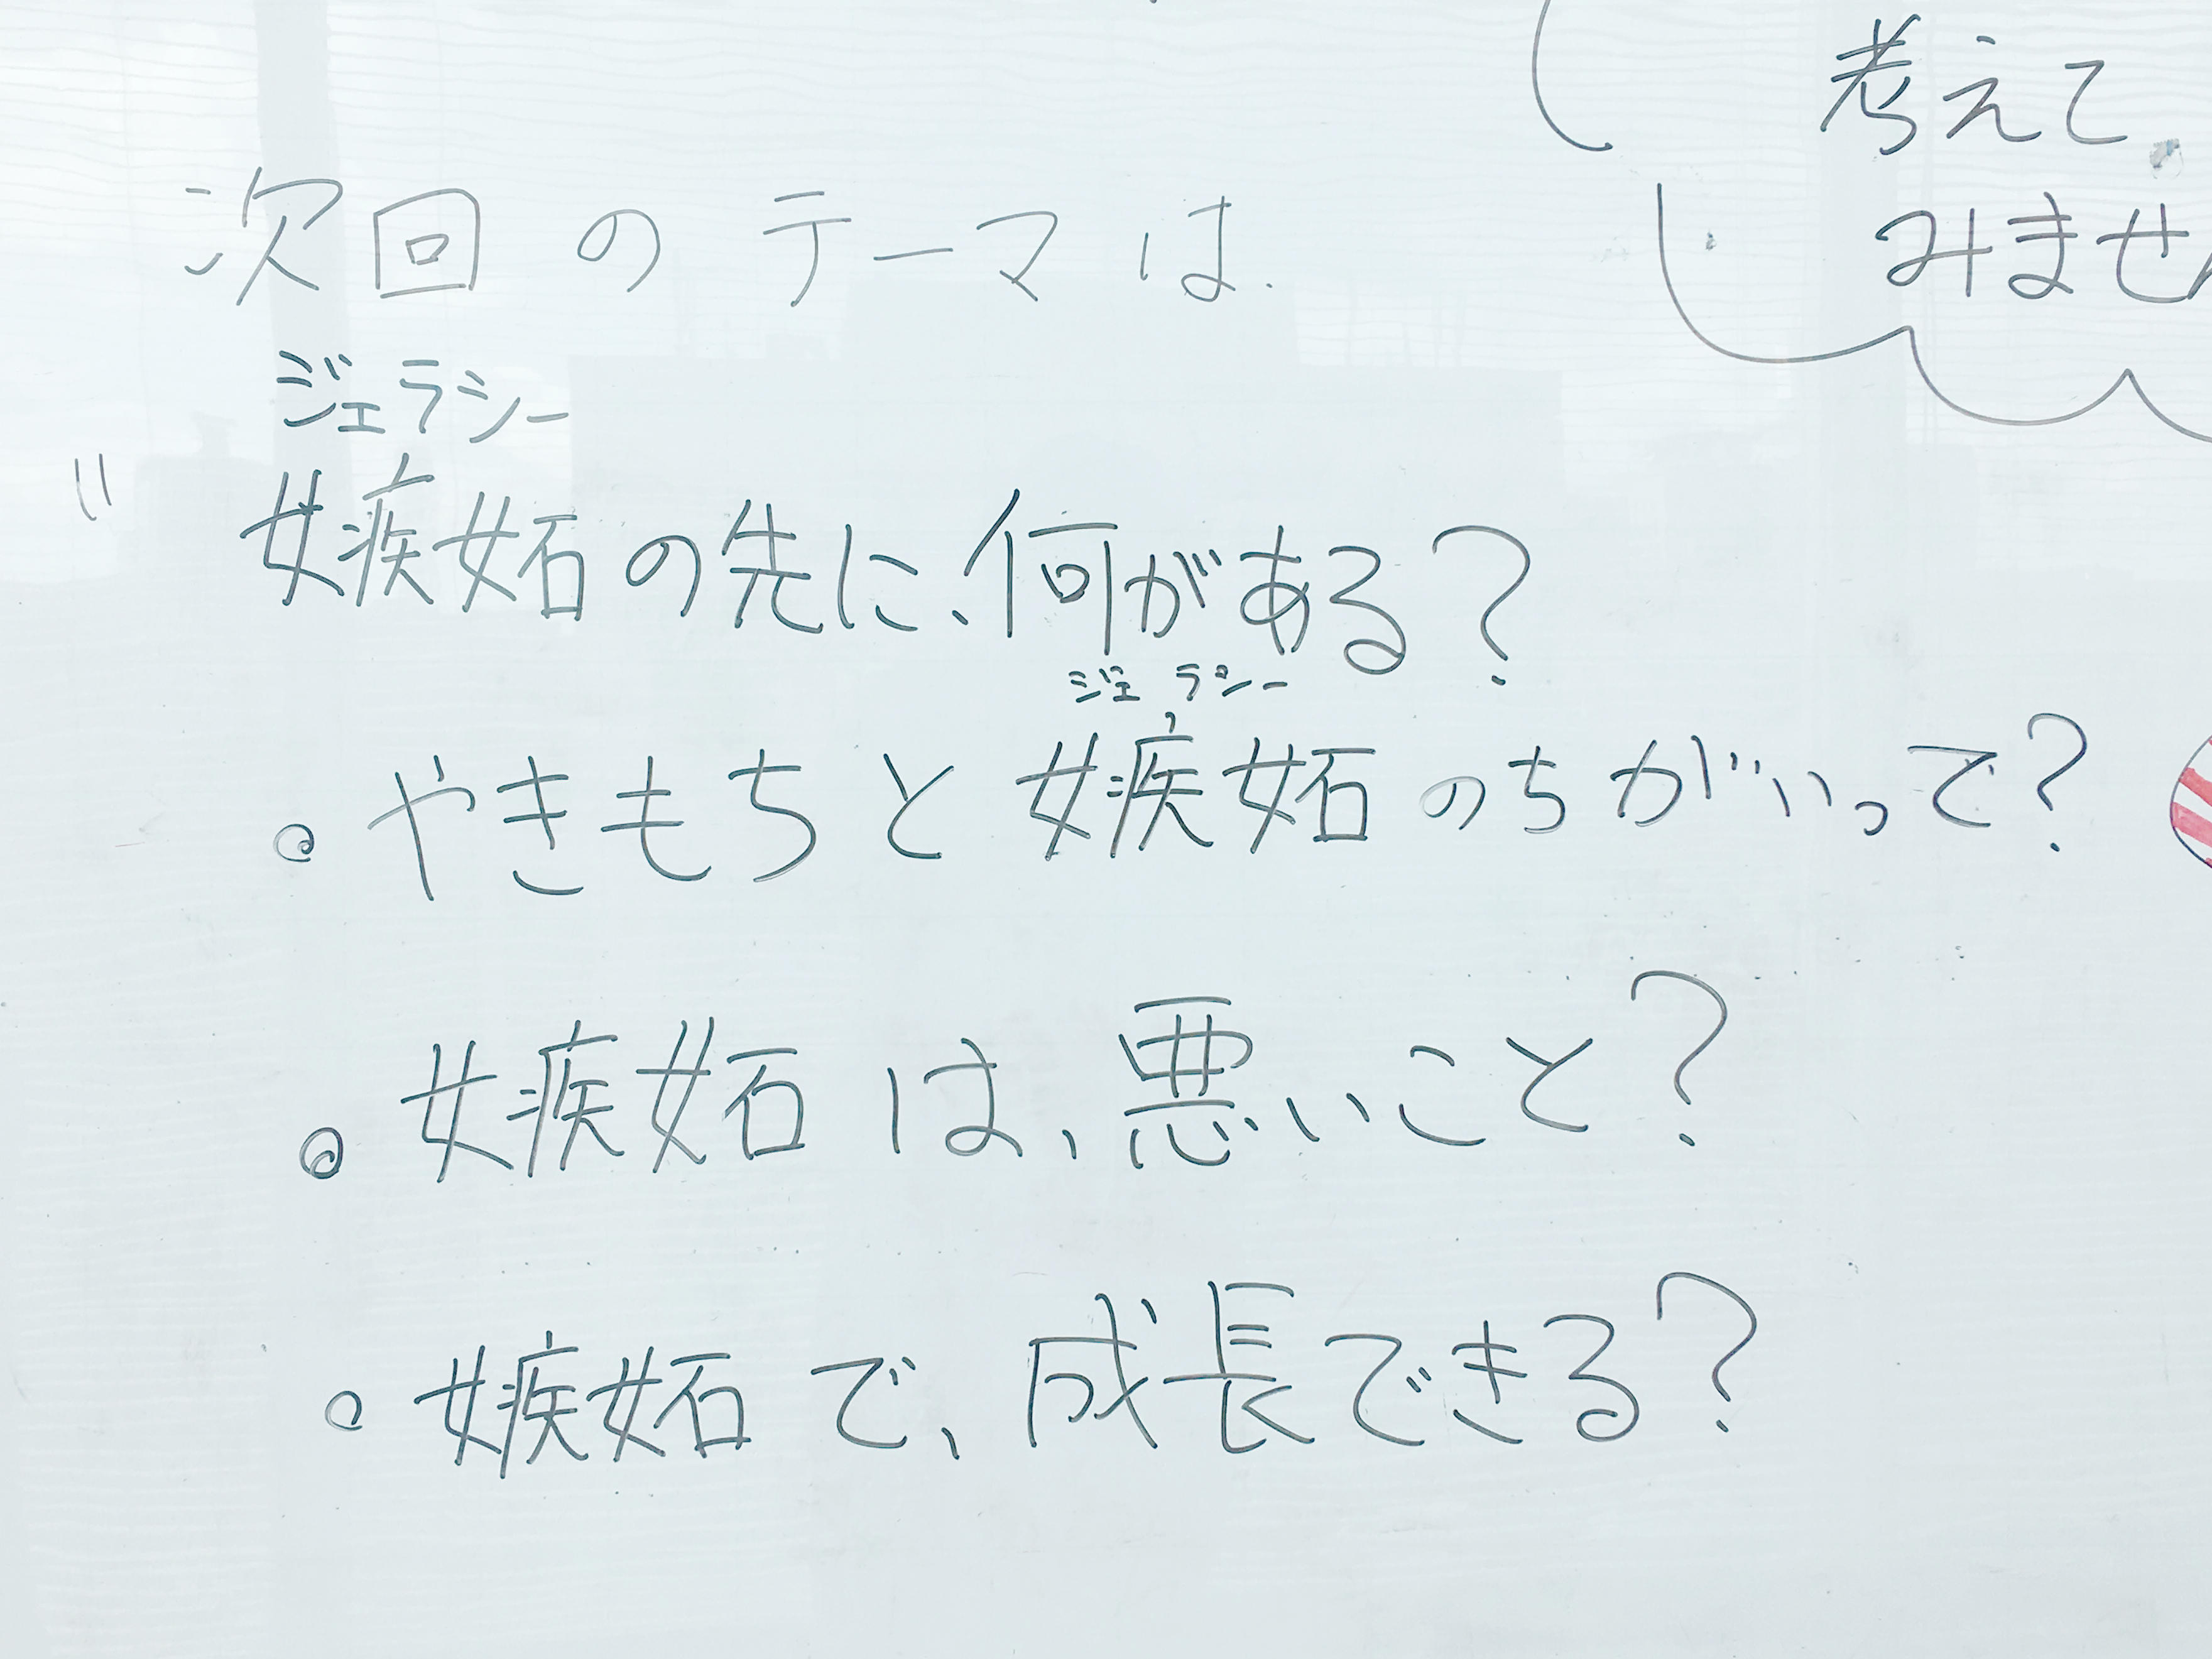 考えて
みませ
次回のテーマは
ジェラシー
"嫉妬の先に、何がある?
ジェラシー
・やきもちと嫉妬のちがいって?
・嫉妬は、悪いこと?
・嫉妬で、成長できる?